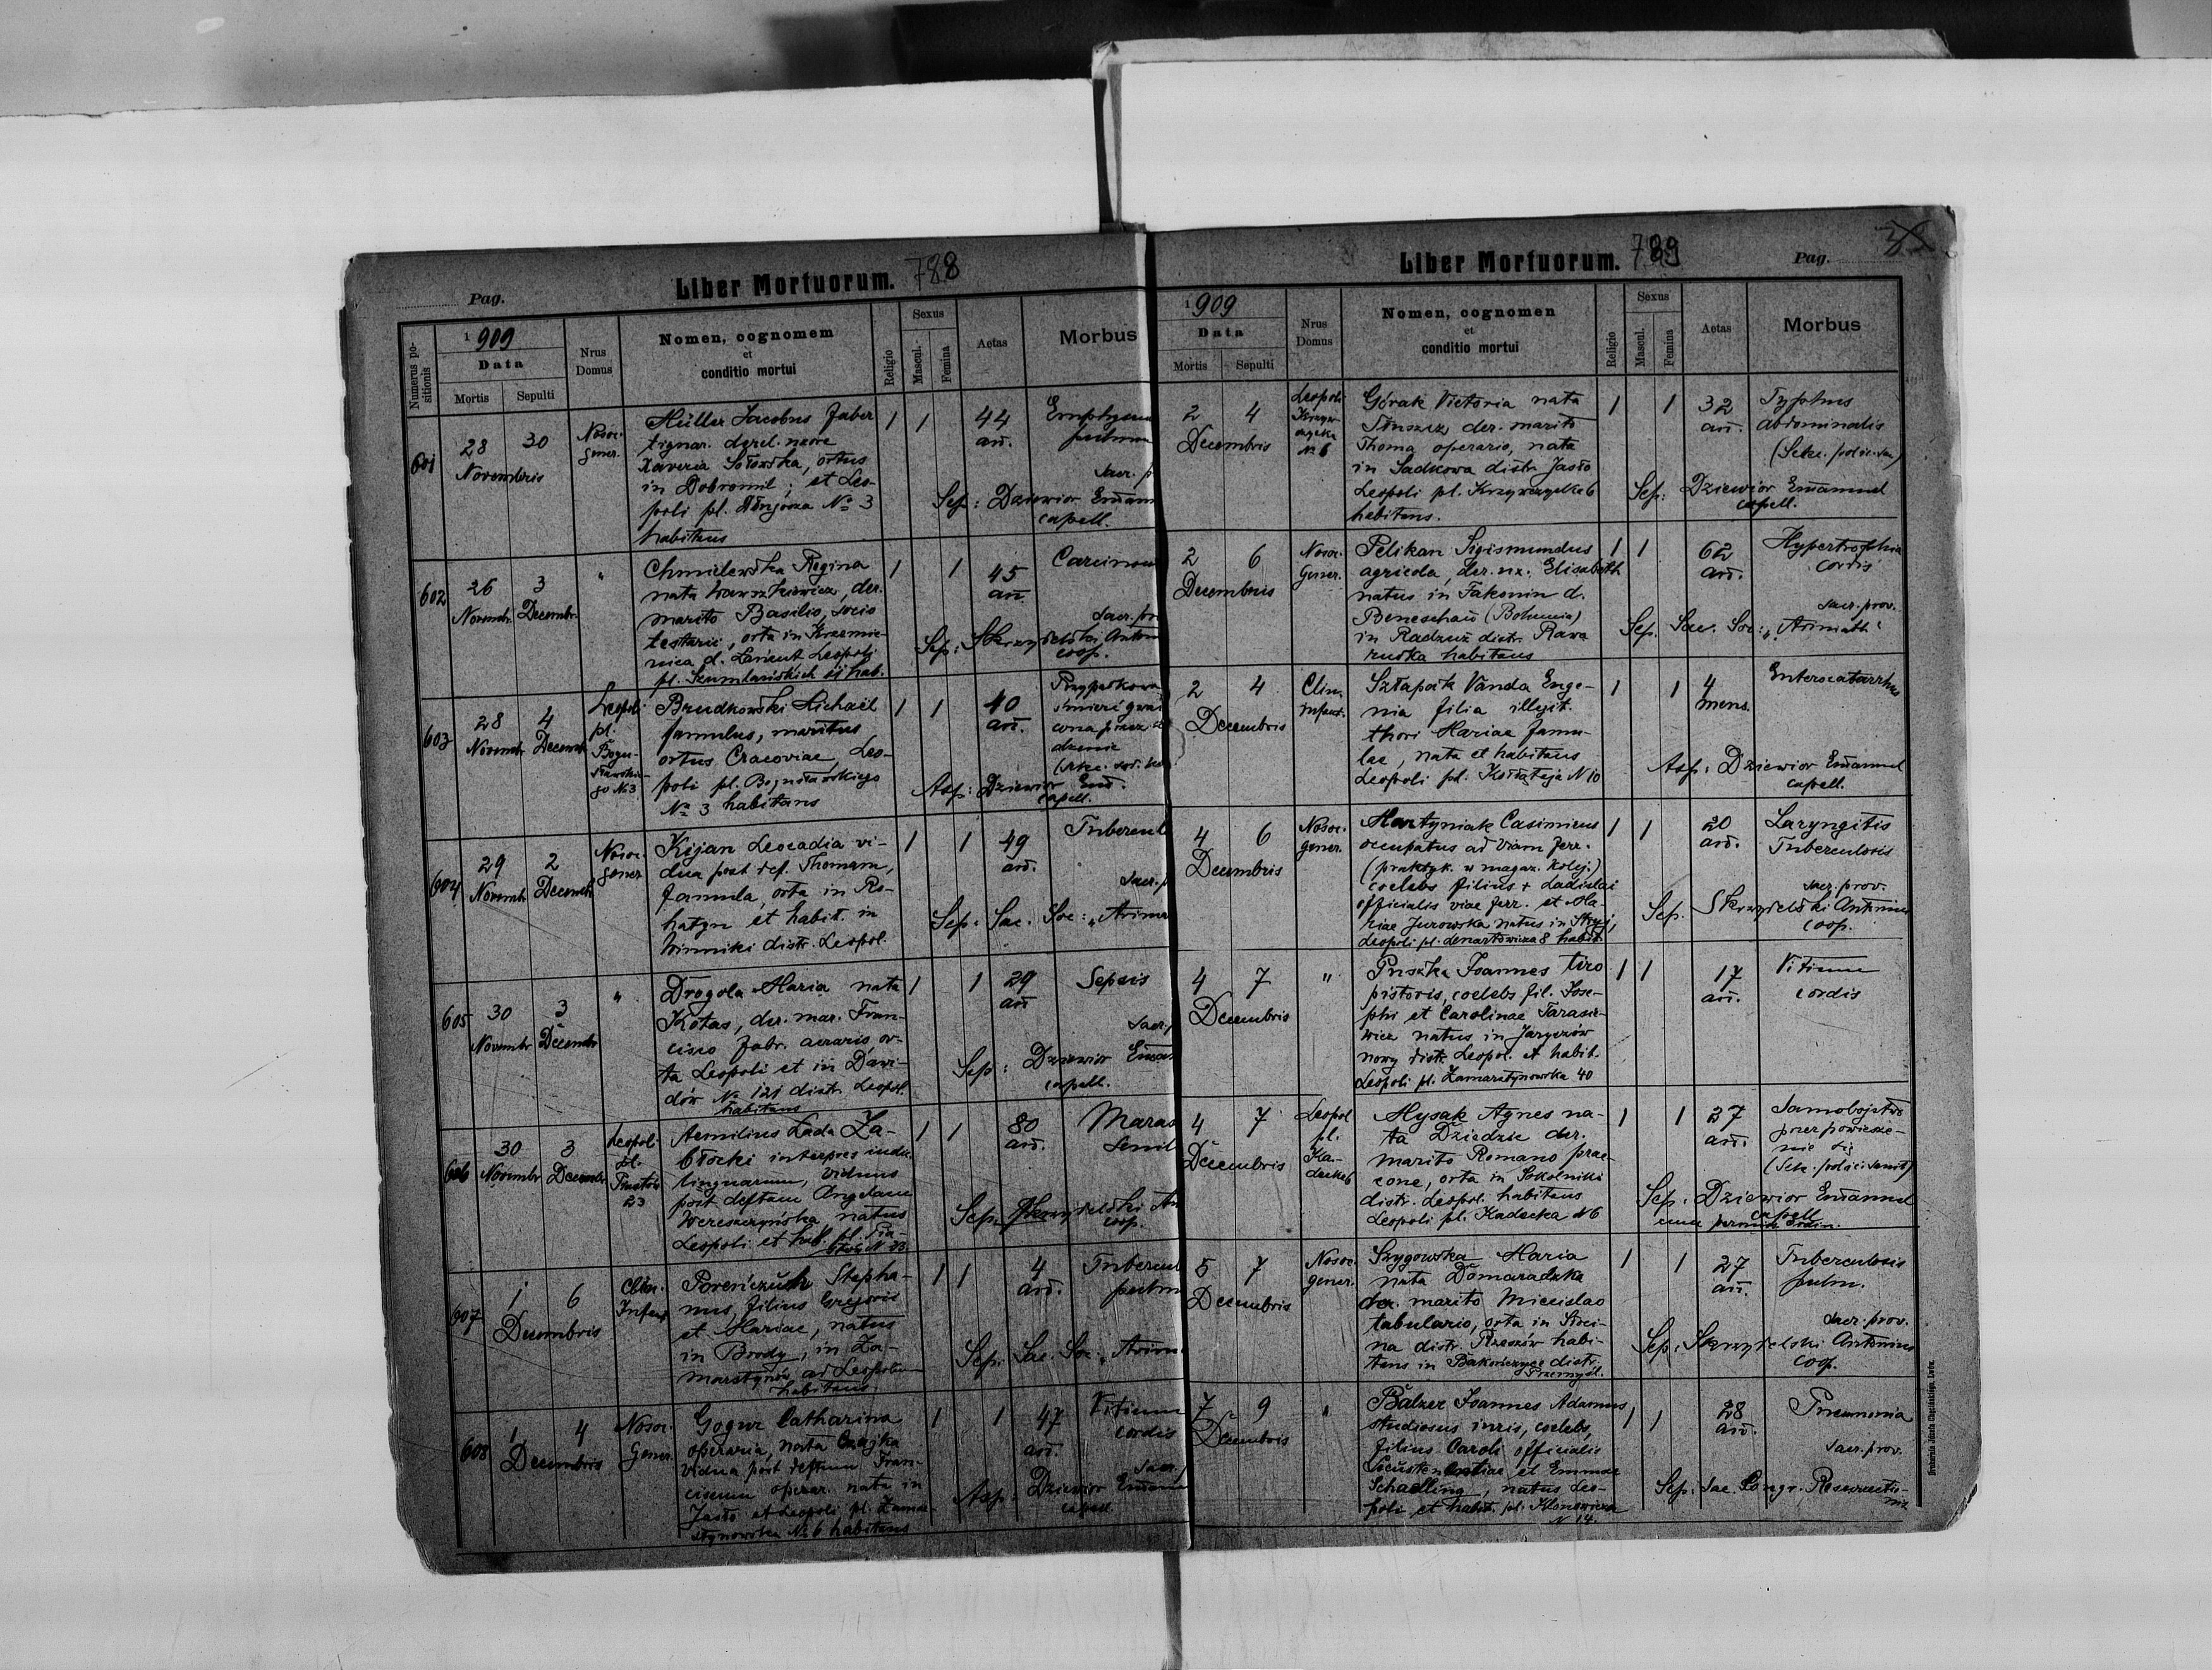 Pag.
Liber Mortuorum. 788
Numerus positionis
1909
Data
Mortis
Sepulti
Nrus Domus
Nomen, cognomen
et
conditio mortui
Religio
Sexus
Mascul.
Femina
Aetas
Morbus
601
28 30
Novembris
Nosoc.
gener.
Müller Jacobus faber
tignar. derel. uxore
Xaveria Sołowska, ortus
in Dobromil; et Leo-
poli pl. No 3
habitans
1 1
44
an.
Sep: Dziewior Eman
capell.
602
26 3
Novembr. Decembr.
"
Chmielewska Regina
nata Wawszkiewicz, der.
marito Basilio, socio
testarii, orta in Krzemie-
nica d. Łańcut Leopoli
pl. hab.
1 1
45
an.
Sep: Skrzydelski Anton
coop.
603
28 4
Novembr. Decembr.
Leopoli
pl.
Bogu-
sławskie-
go No 3
Brudkowski Michael
famulus, maritus
ortus Cracoviae, Leo-
poli pl. Bogusławskiego
No 3 habitans
1 1
40
an.
Asp: Dziewior Em.
capell.
604
29 2
Novembr. Decemb.
Nosoc.
gener
Kijan Leocadia vi-
dua post def. Thomam,
famula, orta in Ro-
hatyn et habit. in
Winniki distr. Leopol.
1 1
49
an.
Tubercul
Sep: Sac. Soc:
605
30 3
Novembr Decembr
"
Drogola Maria nata
Kotas, der. mar. Fran-
cisco fabr. aerario, or-
ta Leopoli et in Davi-
dów No 121 distr. Leopol.
habitans
1 1
29
an
Sepsis
Sep: Dziewior Eman
capell.
606
30 3
Novembr Decembr
Leopoli
pl.
Piastów
23
Aemilius Łada Za-
błocki interpres
linguarum, viduus
post deftam Angelam
Wereszczyńska natus
Leopoli et hab. pl. Pia-
stów N 23.
1 1
80
an.
Maras
senil
Sep. Skrzydelski An
coop.
607
1 6
Decembris
Clin.
Infant
Poreńczuk Stepha-
nus, filius Gregorii
et Mariae, natus
in Brody, in Za-
marstynów ad Leopolim
habitans
1 1
4
an.
Tubercul
pulm
Sep. Sac. Soc:
608
1 4
Decembris
Nosoc.
Gener.
Gogur Catharina
operaria, nata Czajka
vidua post deftum Fran-
ciscum operar. nata in
Jasło et Leopoli pl. Zamar-
stynowska No 6 habitans
1 1
47
an.
Vitium
cordis
Asp: Dziewior Eman
capell.
Liber Mortuorum. 789
Pag.
1909
Data
Mortis
Sepulti
Nrus
Domus
Nomen, cognomen
et
conditio mortui
Religio
Sexus
Mascul.
Femina
Aetas
Morbus
2 4
Decembris
Leopoli
No 6
Górak Victoria nata
Słuszcz der. marito
Thoma operario, nata
in Sadkowa distr. Jasło
Leopoli pl. Krzywczycka 6
habitans.
1 1
32
an.
Typhus
abdominalis
Sep: Dziewior Emanuel
capell.
2 6
Decembris
Nosoc.
Gener.
Pelikan Sigismundus
agricola, der. ux. Elisabeth
natus in Takonin d.
Beneschau (Bohemia)
in Radruż distr. Rawa
ruska habitans
1 1
62
an.
Hypertrophia
cordis
sacr. prov.
Sep. Sac. Soc:
2 4
Decembris
Clin.
Infant.
Szłapak Vanda Euge-
nia filia illegit.
thori Mariae famu-
lae, nata et habitans
Leopoli pl. Kołłątaja N 10
1 1
4
mens.
Enterocatarrhus
Asp: Dziewior Emanuel
capell.
4 6
Decembris
Nosoc.
gener.
Martyniak Casimirus
occupatus ad viam ferr.
(praktyk. w magaz. kolej.)
coelebs filius + Ladislai
officialis viae ferr. et Ma-
riae Jurowska natus in Stryj,
Leopoli pl. Lenartowicza 8 habit.
1 1
20
an.
Laryngitis
Tuberculosis
sacr. prov.
Sep. Skrzydelski Antonius
coop.
4 7
Decembris
"
Puszka Joannes tiro
pistoris, coelebs fil. Jose-
phi et Carolinae Tarasie-
wicz natus in Jaryczów
nowy distr. Leopol. et habit.
Leopoli pl. Zamarstynowska 40
1 1
17
an.
Vitium
cordis
4 7
Decembris
Leopol
pl.
Ka-
decka 6
Mysak Agnes na-
ta Dziedzic der.
marito Romano prae-
cone, orta in Sokolniki
distr. Leopol. habitans
Leopoli pl. Kadecka N 6
1 1
27
an.
Samobójstwo
przez powiesze-
nie się
Sep. Dziewior Emanuel
capell
cum permiss. Ordin.
5 7
Decembris
Nosoc.
gener.
Szygowska Maria
nata Domaradzka
der. marito Miecislao
tabulario, orta in
na distr. Rzeszów habi-
tans in Bakończyce distr.
Przemyśl.
1 1
27
an.
Tuberculosis
pulm.
sacr. prov.
Sep. Skrzydelski Antonius
coop.
7 9
Decembris
"
Balzer Joannes Adamus
studiosus iuris, coelebs,
filius Caroli officialis
Locustenentiae et Emmae
Schadling, natus Leo-
poli et habit. pl. Klonowicza
N 14.
1 1
28
an.
Pneumonia
sacr. prov.
Sep: Sac. Congr. Resurrectio-
nis